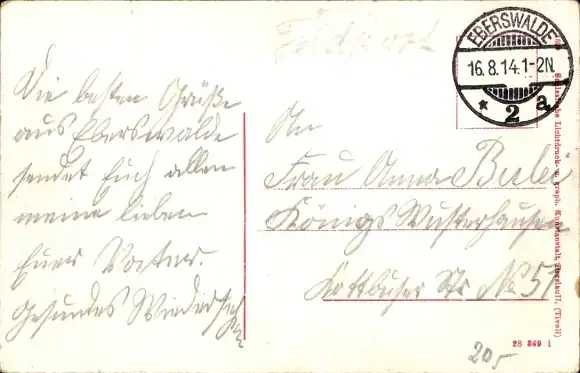 Feldpost
EBERSWALDE
16.8.14.1-2N.
* 2 a.
Die besten Grüße
aus Eberswalde
sendet Euch allen
meine lieben
Euer Vater.
Gesundes Wiederseh
An
Frau Anna
Königs Wusterhausen
Kottbuser Str No 57
Lichtdruck- u. graph. Kunstanstalt, (Tivoli)
28 869 i
20,-